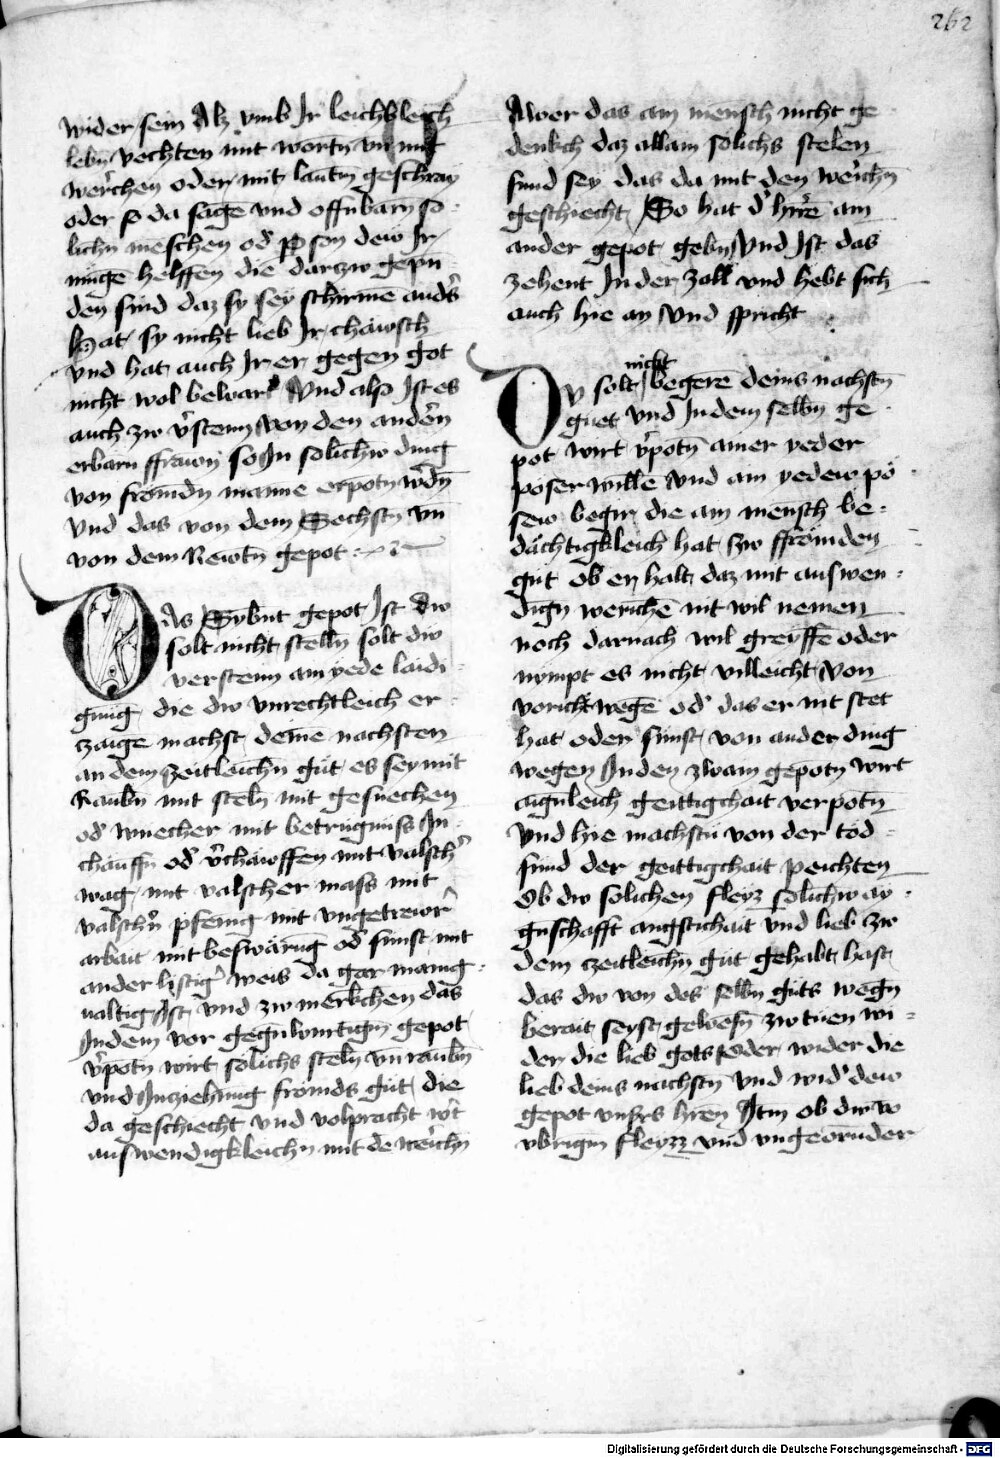 262
wider sein Alz vmb Ir leichblleich
lebn̄ vechten mit wortn̄ vn̄ mit
werchen oder mit lautm̄ geschray
oder so da sagē vnd offnbarn so
lichn meschen od' person dew Ir
mügē helffen die darzw gepu
den sind daz sy sey schirmē and's
hat sy nicht lieb Ir chäwsch
vnd hat auch Ir er gegen got
nicht wol bewart Vnd also Ist es
auch zw v'stenn von den andern
erbarn ffrawn so In solichn ding
von frömdn manne erpotn w'dn̄
Vnd das von dem Sechstn̄ vn̄
von dem Newtn̄ gepot
Das Sybnt gepot Ist dw
solt nicht stelln solt dw
verstenn am yede laidi
gung die dw vnrechtleich er
czaige machst deine nachsten
an dem zeitleichn güt es sey mit
Raubn̄ mit steln̄ mit gesuechen
od' wuecher mit betrugnuss In
chäuffn̄ od' v'chäwffen mit valsch'
wag mit valscher mass mit
valschn̄ pfenig mit vngetrewr
arbait mit beswärūg od' sünst mit
ander listig' weis da gar manig
ualtig Ist vnd zw merkchen das
Indem vor gegnburtigm̄ gepot
v'potn̄ wirt solichs steln vn̄ raubn̄
vnd Inziehung frömds güt die
da geschiecht vnd volpracht w't
auswendigkleichn mit de werichn
Awer das am mensch nicht ge
denkch daz allain solichs stelen
sund sey das da mit den werichn̄
geschiecht So hat d' h're am
ander gepot gebn̄ Vnd Ist das
zehent In der zall vnd hebt sich
auch hie an Vnd spricht
nicht
Dv solt begerē deins nachstn̄
guet vnd In dem selbn̄ ge
pot wirt v'potn̄ ainer yeder
poser wille Vnd ain yedew pö
sew begir die am mensch be
dächtigkleich hat zw ffrömden
güt ob er halt daz mit auswen
dign̄ werichē nit wil nemen
noch darnach wil greyffē oder
nympt es nicht villeicht von
voricht wegē od' das er nit stet
hat oder sünst von ander ding
wegen In den zwain gepotn̄ wirt
aignleich geittigchait verpotn̄
Vnd hie machstu von der tod
sünd der geittigchait peichten
Ob dw solichen fleyz solichw ay
gnschafft angstichait vnd lieb zw
dem czeitleichn̄ güt gehabt hast
das dw von des selbn̄ güts wegn̄
berait seyst gewesn̄ zw tuen wi
der die lieb gots oder wider die
lieb deins nachstn̄ Vnd wid' dew
gepot vnsers hren̄ Itm̄ ob dw
vbrigm̄ fleyzz vnd vngeornder
Digitalisierung gefördert durch die Deutsche Forschungsgemeinschaft - DFG